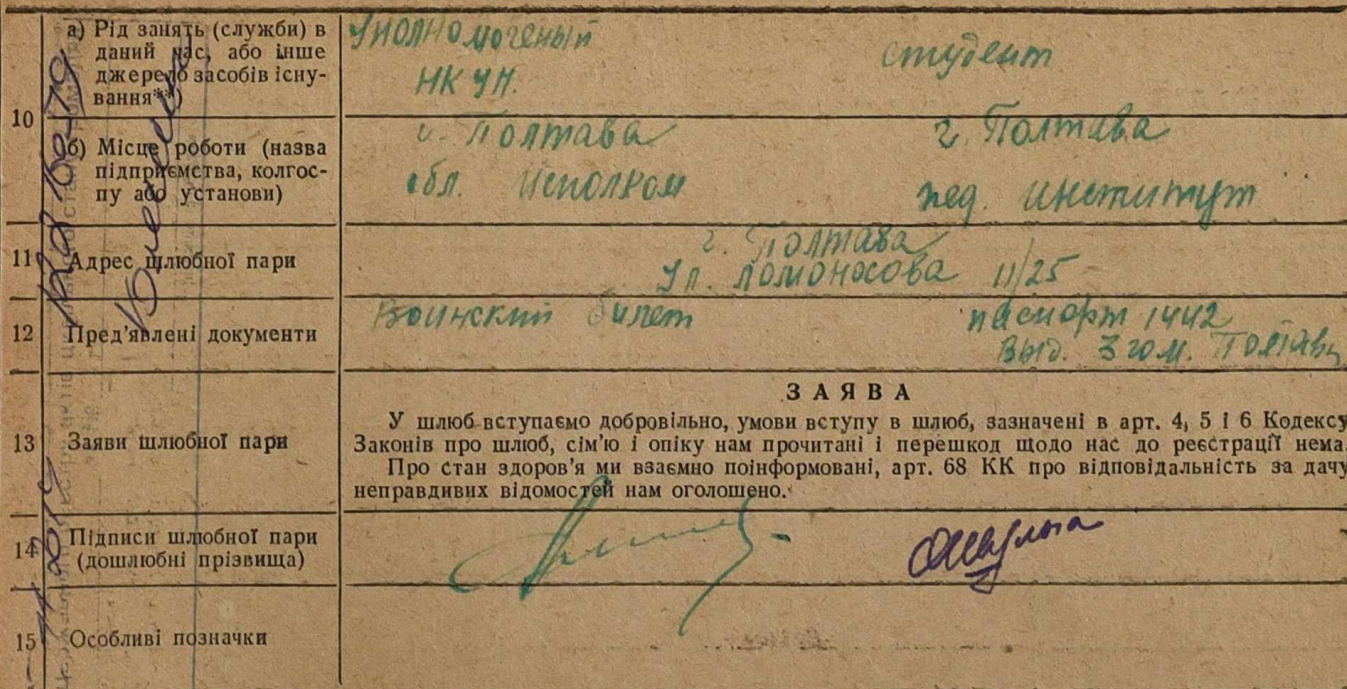 10
а) Рід занять (служби) в
даний час, або інше
джерело засобів існу-
вання**)
Уполномоченый
НКУН.
студент
б) Місце роботи (назва
підприємства, колгос-
пу або установи)
г. Полтава
обл. исполком
г. Полтава
пед. институт
11
Адрес шлюбної пари
г. Полтава
Ул. Ломоносова 11/25
12
Пред'явлені документи
Воинский билет
паспорт 1442
выд. 3 гом. Полтавы
13
Заяви шлюбної пари
ЗАЯВА
У шлюб вступаємо добровільно, умови вступу в шлюб, зазначені в арт. 4, 5 і 6 Кодексу
Законів про шлюб, сім'ю і опіку нам прочитані і перешкод щодо нас до реєстрації нема.
Про стан здоров'я ми взаємно поінформовані, арт. 68 КК про відповідальність за дачу
неправдивих відомостей нам оголошено.
14
Підписи шлюбної пари
(дошлюбні прізвища)
15
Особливі позначки